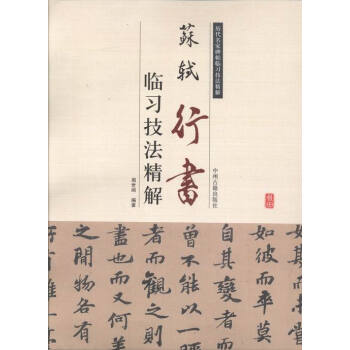 历代名家碑帖临习技法精解
蘇軾
行書
临习技法精解
编著
中州古籍出版社
如彼而
自其變者
者而觀之則
盡也而又何
之間物各有